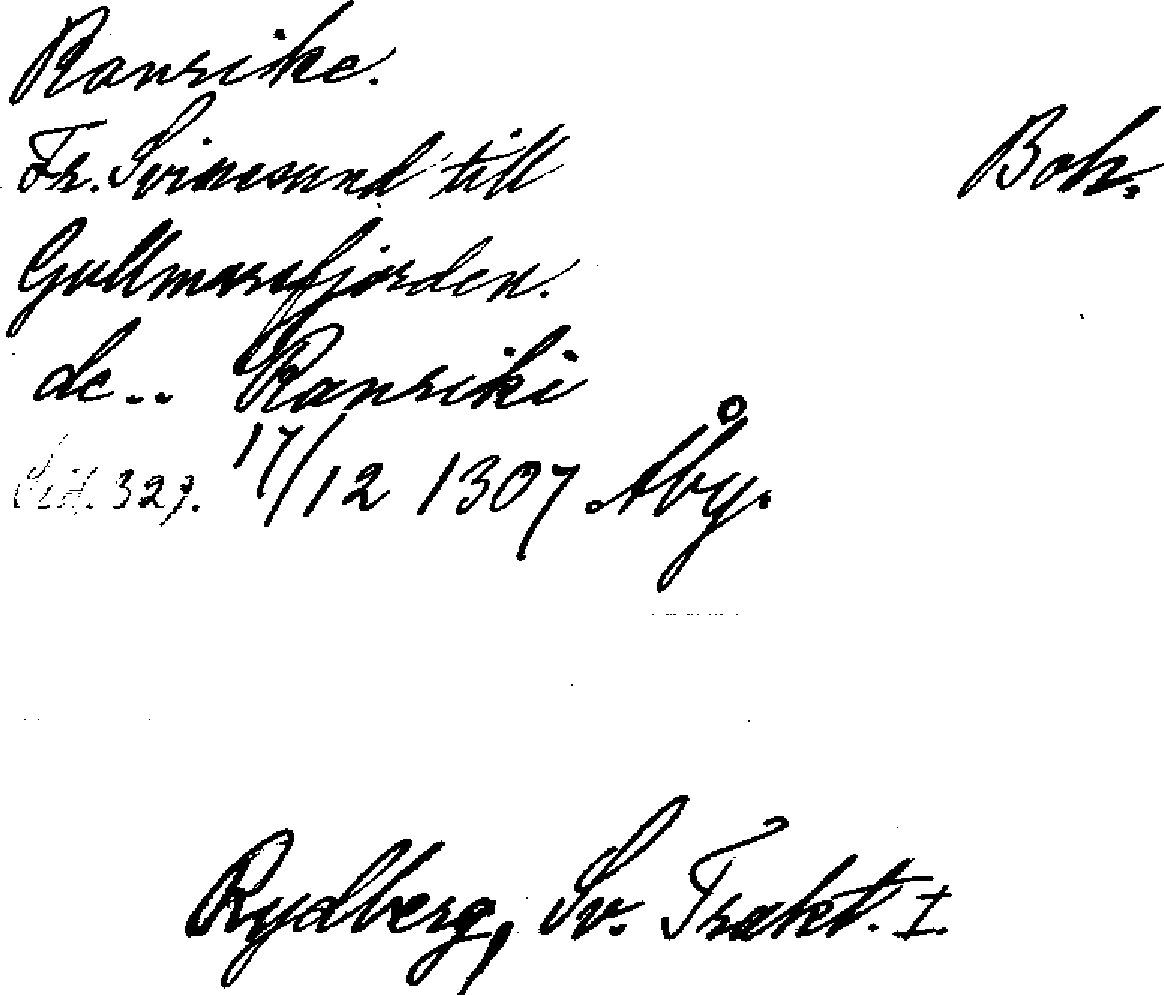 Ranrike.
Fr. Svinesund till
Boh.
Gullmarsfjorden.
de.. Ranriki
Sid. 329. 17/12 1307 Åby.
Rydberg, Sv. Trakt. I.